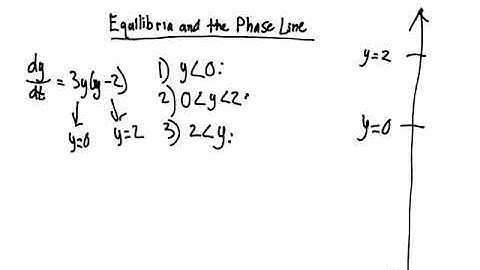 Equilibria and the Phase Line
dy/dt = 3y(y-2)
y=0 y=2
1) y<0:
2) 0<y<2:
3) 2<y:
y=2
y=0